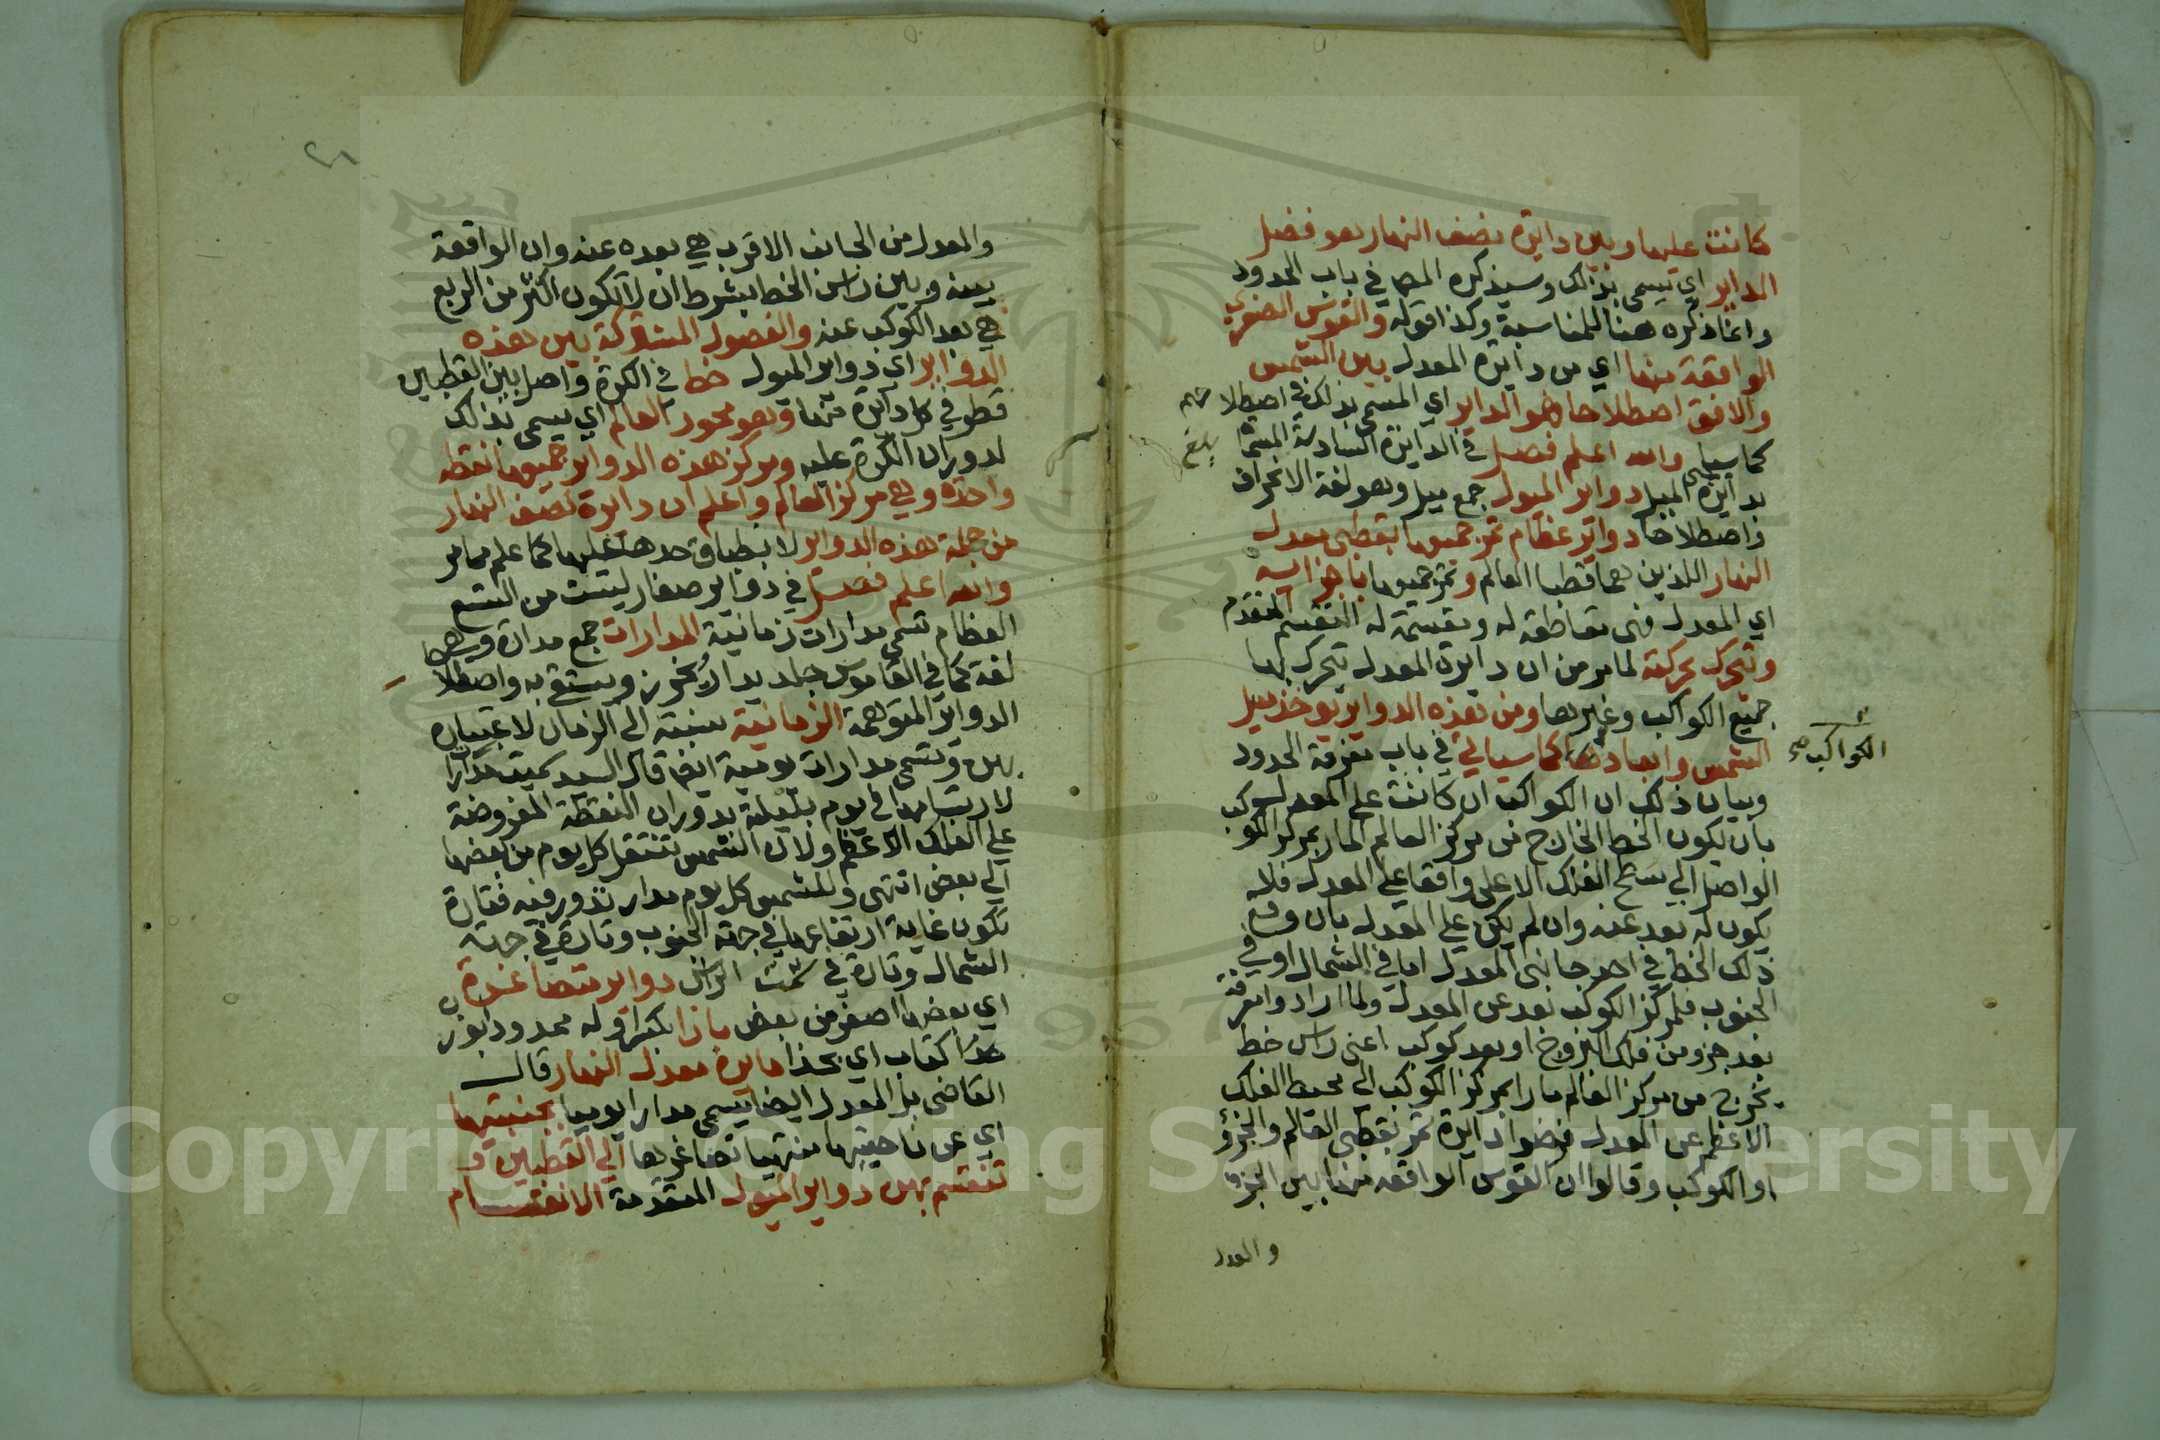 كانت عليها وبين دايرة نصف النهار هو فضل
الداير اي يسمى بذلك وسيذكره المص في باب الحدود
وانما ذكره هنا للمناسبة وكذا قوله والقوس الصغرى
الواقعة منها اي من دايرة المعدل بين الشمس
والافق اصطلاحا هو الداير اي المسمى بذلك في اصطلاحهم
كما سياتي والله اعلم فصل في الدايرة السادسة المسماة
بدايرة الميل دواير الميول جمع ميل وهو لغة الانحراف
واصطلاحا دواير عظام تمر جميعها بقطبي معدل
النهار اللذين هما قطبا العالم وتمر جميعها باجزايه
اي المعدل فهي تقاطعه له ومقسمة له التقسيم المتقدم
وتتحرك بحركته لما مر من ان دايرة المعدل تتحرك بها
جميع الكواكب وغيرها ومن هذه الدواير يوخذ ميل
الشمس وابعاد كما سياتي في باب معرفة الحدود
الكواكب صح
وبيان ذلك ان الكواكب ان كانت على المعدل
بان يكون الخط الخارج من مركز العالم المار بمركز الكوكب
الواصل الي سطح الفلك الاعلى واقعا على المعدل فلا
يكون له بعد عنه وان لم يكن على المعدل بان وقع
ذلك الخط في احد جانبي المعدل اما في الشمال او في
الجنوب فلمركز الكوكب بعد عن المعدل ولما ارادوا معرفة
بعد جزو من فلك البروج او بعد كوكب اعني راس خط
يخرج من مركز العالم مارا بمركز الكوكب الى محيط الفلك
الاعظم عن المعدل فرضوا دايرة تمر بقطبي العالم والجزؤ
او الكوكب وقالوا ان القوس الواقعه منها بين الجزو
والمعدل
والمعدل من الجانب الاقرب هي بعده عنه وان الواقعة
بينه وبين راس الخط بشرط ان لا تكون اكثر من الربع
هي بعد الكوكب عنه والفصول المشتركة بين هذه
الدواير اي دواير الميول خط في الكرة واصل بين القطبين
قطر في كل دايرة منها وهو محور العالم اي يسمى بذلك
لدوران الكرة عليه ومركز هذه الدواير جميعها نقطة
واحدة وهي مركز العالم واعلم ان دايرة نصف النهار
من جملة هذه الدواير لانطباق حدها عليها كما علم مما مر
والله اعلم فصل في دواير صغار ليست من التسع
العظام تسمى مدارات زمانية المدارات جمع مدارة وهي
لغة كما في القاموس جلد يدار ويخرز ويستقى به واصطلاحا
الدواير المتوهمة الزمانية نسبة الى الزمان لاعتباره
بهن وتسمى مدارات يومية ايضا قال السيد سميت مدارا
لارتسامها في يوم بليلة بدوران النقطة المفروضة
على الفلك الاعظم ولان الشمس تنتقل كل يوم من بعضها
الي بعض انتهى وللشمس كل يوم مدار تدور فيه فتارة
تكون غاية ارتفاعها في جهة الجنوب وتارة في جهة
الشمال وتارة في سمت الراس دواير متصاغرة
اي بعضها اصغر من بعض بازا بكسر اوله ممدود بوزن
حذا كتاب اي بحذا دايرة معدل النهار قال
القاضي بل المعدل ايضا يسمى مدارا يوميا بجنبتيها
اي عن ناحيتيها منتهيا تصاغرها الي القطبين و
تنقسم بهن دواير الميول المتقدمة الانقسام